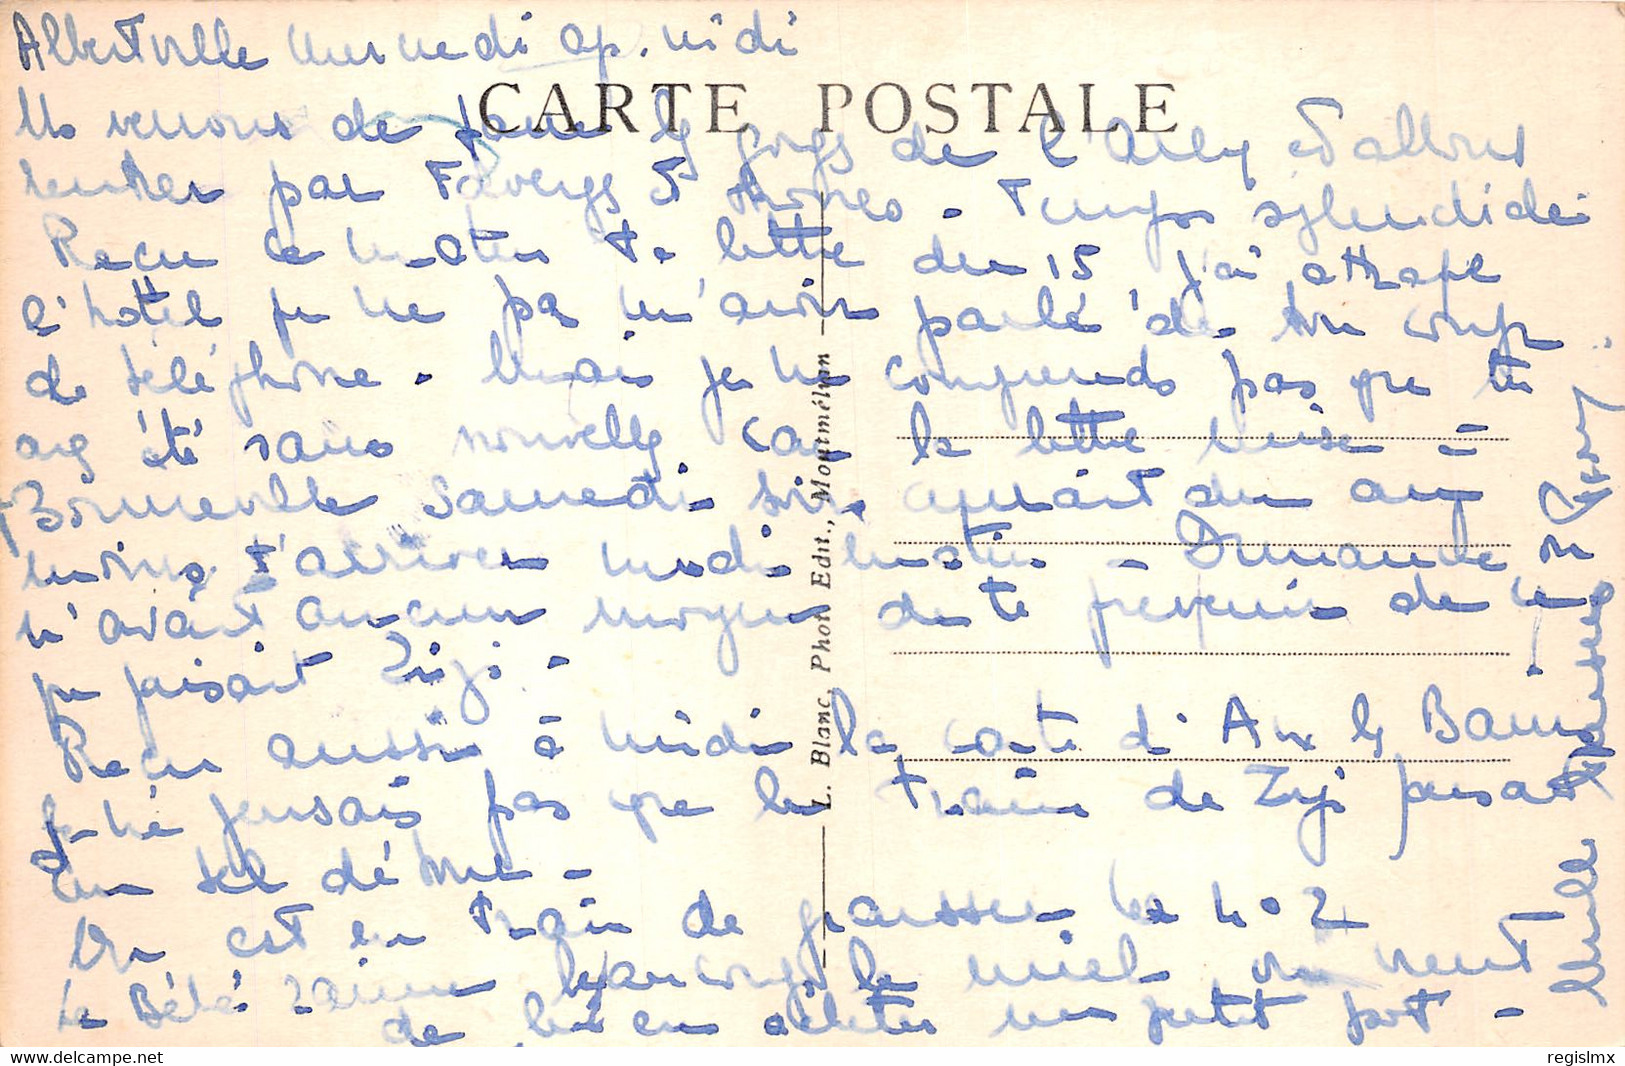 Albertville mercredi ap. midi
CARTE POSTALE
Ns venons de faire les gorges de l'Arly et allons
rentrer par Faverges et Thônes - Temps splendide
Reçu ce matin ta lettre du 15 j'ai attrapé
l'hôtel pr ne pas m'avoir parlé de ton coup
de téléphone - Mais je ne comprends pas que tu
aies été sans nouvelles car la lettre mise à
Bonneville samedi soir aurait du au
moins t'arriver lundi matin - Dimanche
n'avait aucun moyen de te prévenir de ce
que faisait Zizi -
Reçu aussi à midi la carte d'Aix les Bains
je ne pensais pas que le train de Zizi faisait
un tel détour -
On est en train de graisser la 402
Le Bébé aime beaucoup le miel on vient
de lui en acheter un petit pot -
mille
L. Blanc, Phot. Edit., Montmélian
regislmx